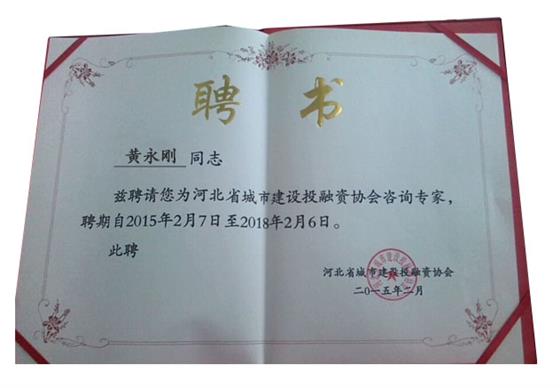 聘书
黄永刚 同志
兹聘请您为河北省城市建设投融资协会咨询专家，
聘期自2015年2月7日至2018年2月6日。
此聘
河北省城市建设投融资协会
二〇一五年二月